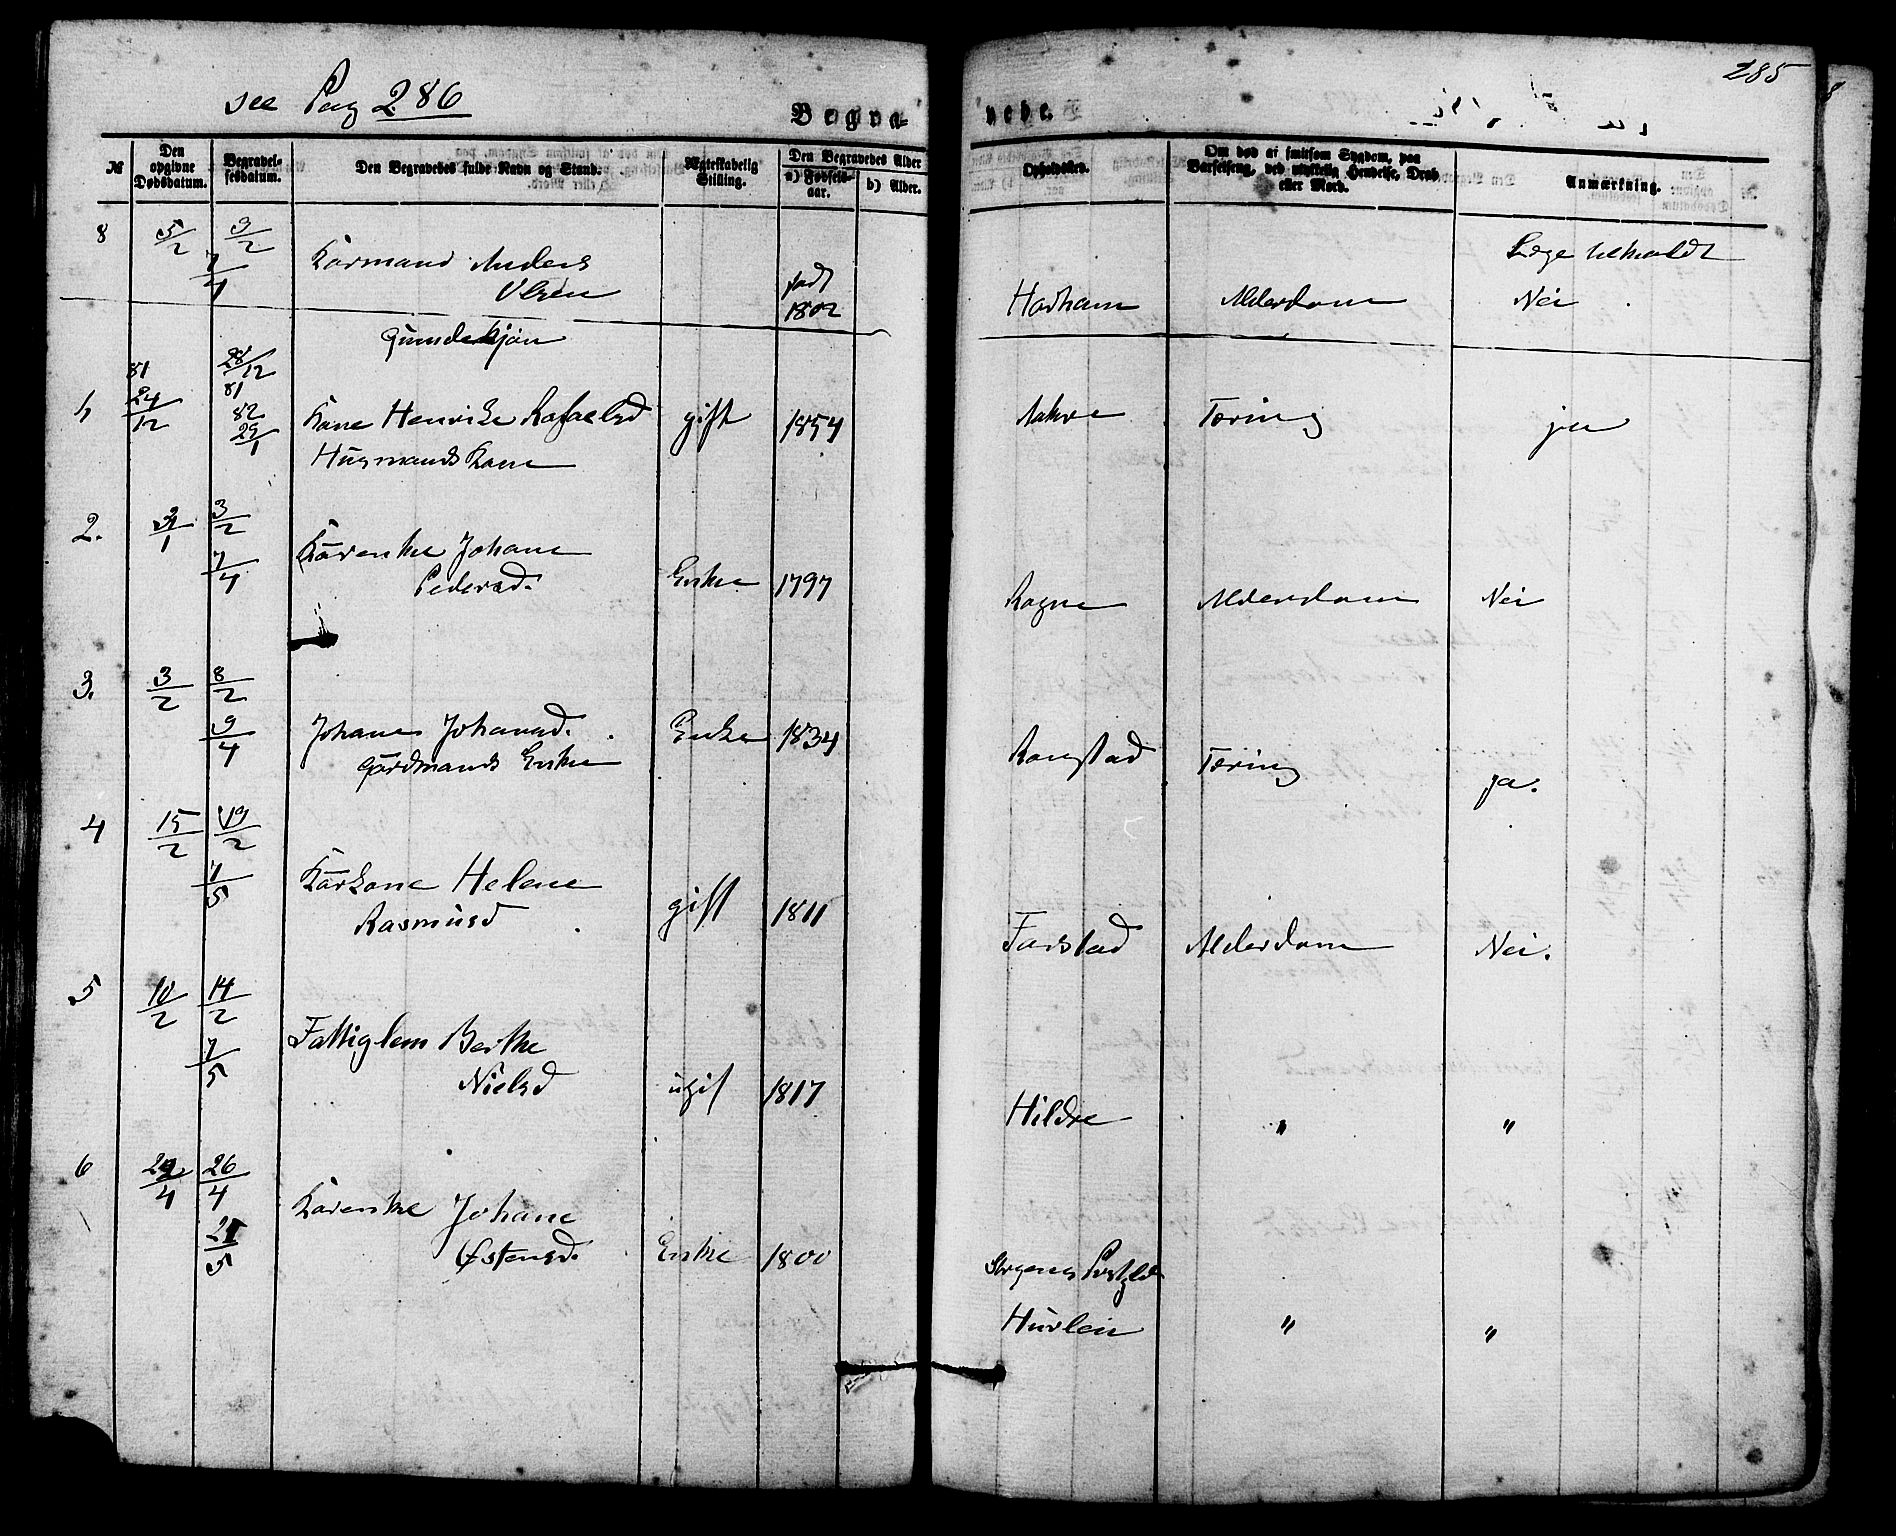 see Pag 286
285
Begravede.
№ | Den opgivne Dødsdatum. | Begravelsesdatum. | Den Begravedes fulde Navn og Stand. | Ægteskabelig Stilling. | Den Begravedes Alder a) Fødselsaar. b) Alder. | Opholdssted. | Om død af smitsom Sygdom, paa Barselseng, ved ulykkelig Hendelse, Drab eller Mord. | Anmærkning.
Læge tilkaldt
8 5/2 3/2 7/4 Kårmand Anders Olsen født 1802 Hadham Alderdom Nei
Qvindekjøn
1 81 24/12 28/12 81 82 29/1 Kone Henrike Rafaelsd gift 1854 Aakre Tæring ja
Husmands Kone
2. 31/1 3/2 7/4 Kårenke Johane Pedersd. Enke 1797 Rogne Alderdom Nei
3. 3/2 8/2 9/4 Johane Johansd. Enke 1834 Ronstad Tæring ja.
Gårdmands Enke
4 15/2 19/2 7/5 Kårkone Helene Rasmusd gift 1811 Farstad Alderdom Nei.
5 10/2 14/2 7/5 Fattiglem Berthe Nielsd ugif 1817 Hildre " "
6 22/4 26/4 21/5 Kårenke Johane Østensd. Enke 1800 Hurlen " "